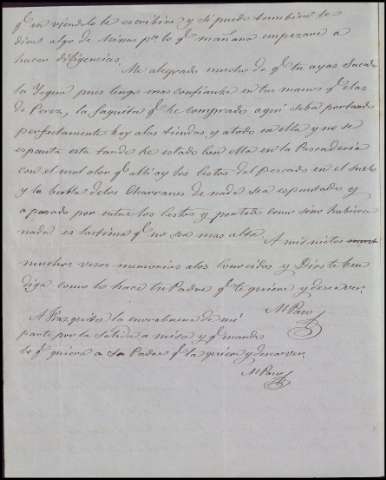 qe en viendolo le escribire y si puedo tambien te
dire algo de Minas pa lo qe mañana empezare a
hacer diligencias.
Me alegrado mucho de qe tu ayas sacado
la Yegua pues tengo mas confianza en tus manos qe en las
de Perez, la Jaquita qe he comprado aqui seba portando
perfectamente hoy alas tiendas y atado en ella y no se
espanta esta tarde he estado con ella en la Pescaderia
con el mal olor qe alli ay los Cestos del pescado en el suelo
y la bulla delos Charranes de nada sea espantado y
apasado por entre los Cestos y gente como sino hubiera
nada es lastima qe no sea mas alta.
A mis nietos
muchos vesos memorias alos Conocidos y Dios te ben
diga como lo hace tu Padre qe te quiere y desea ver.
M Paro
A Frazquita la enorabuena de mi
parte por la salida a misa y qe mande
lo qe quiera a su Padre qe la quiere y desea ver.
M Paro